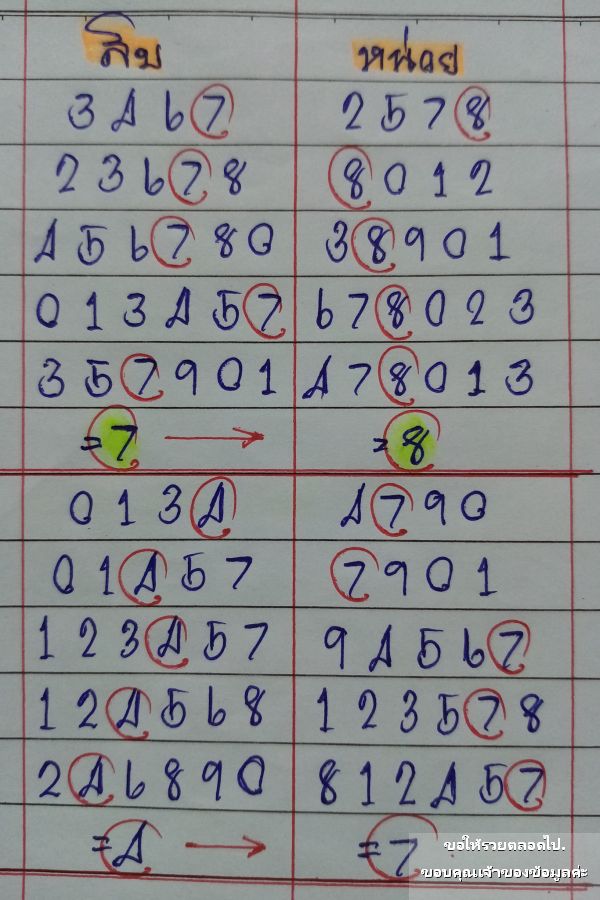 สิบ หน่วย
3 4 6 7 2 5 7 8
2 3 6 7 8 8 0 1 2
4 5 6 7 8 0 3 8 9 0 1
0 1 3 4 5 7 6 7 8 0 2 3
3 5 7 9 0 1 4 7 8 0 1 3
=7 → =8
0 1 3 4 4 7 9 0
0 1 4 5 7 7 9 0 1
1 2 3 4 5 7 9 4 5 6 7
1 2 4 5 6 8 1 2 3 5 7 8
2 4 6 8 9 0 8 1 2 4 5 7
=4 → =7
ขอให้รวยตลอดไป.
ขอบคุณเจ้าของข้อมูลค่ะ